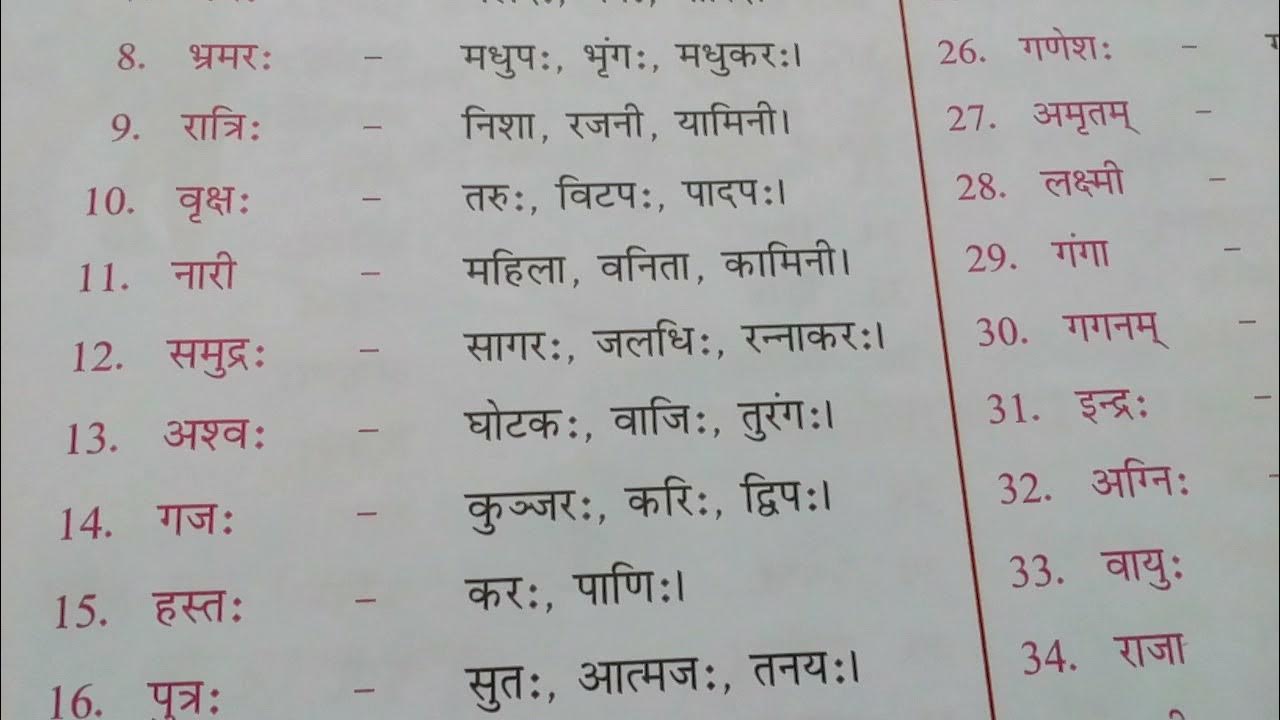 8. भ्रमरः - मधुपः, भृंगः, मधुकरः।
9. रात्रिः - निशा, रजनी, यामिनी।
10. वृक्षः - तरुः, विटपः, पादपः।
11. नारी - महिला, वनिता, कामिनी।
12. समुद्रः - सागरः, जलधिः, रन्नाकरः।
13. अश्वः - घोटकः, वाजिः, तुरंगः।
14. गजः - कुञ्जरः, करिः, द्विपः।
15. हस्तः - करः, पाणिः।
16. पुत्रः - सुतः, आत्मजः, तनयः।
26. गणेशः -
27. अमृतम् -
28. लक्ष्मी -
29. गंगा -
30. गगनम् -
31. इन्द्रः -
32. अग्निः -
33. वायुः
34. राजा